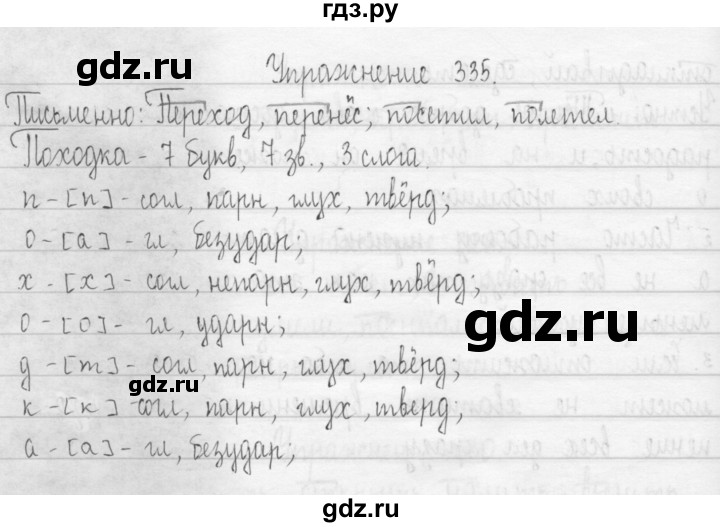 гдз.ру
gdz.ru
Упражнение 335.
Письменно: Переход, перенёс; посетил, полетел
Походка - 7 букв, 7 зв., 3 слога.
п - [п] - согл, парн, глух, твёрд;
о - [а] - гл, безудар;
х - [х] - согл, непарн, глух, твёрд;
gdz.ru
о - [о] - гл, ударн;
д - [т] - согл, парн, глух, твёрд;
gdz.ru
к - [к] - согл, парн, глух, твёрд,
а - [а] - гл, безудар;
gdz.ru